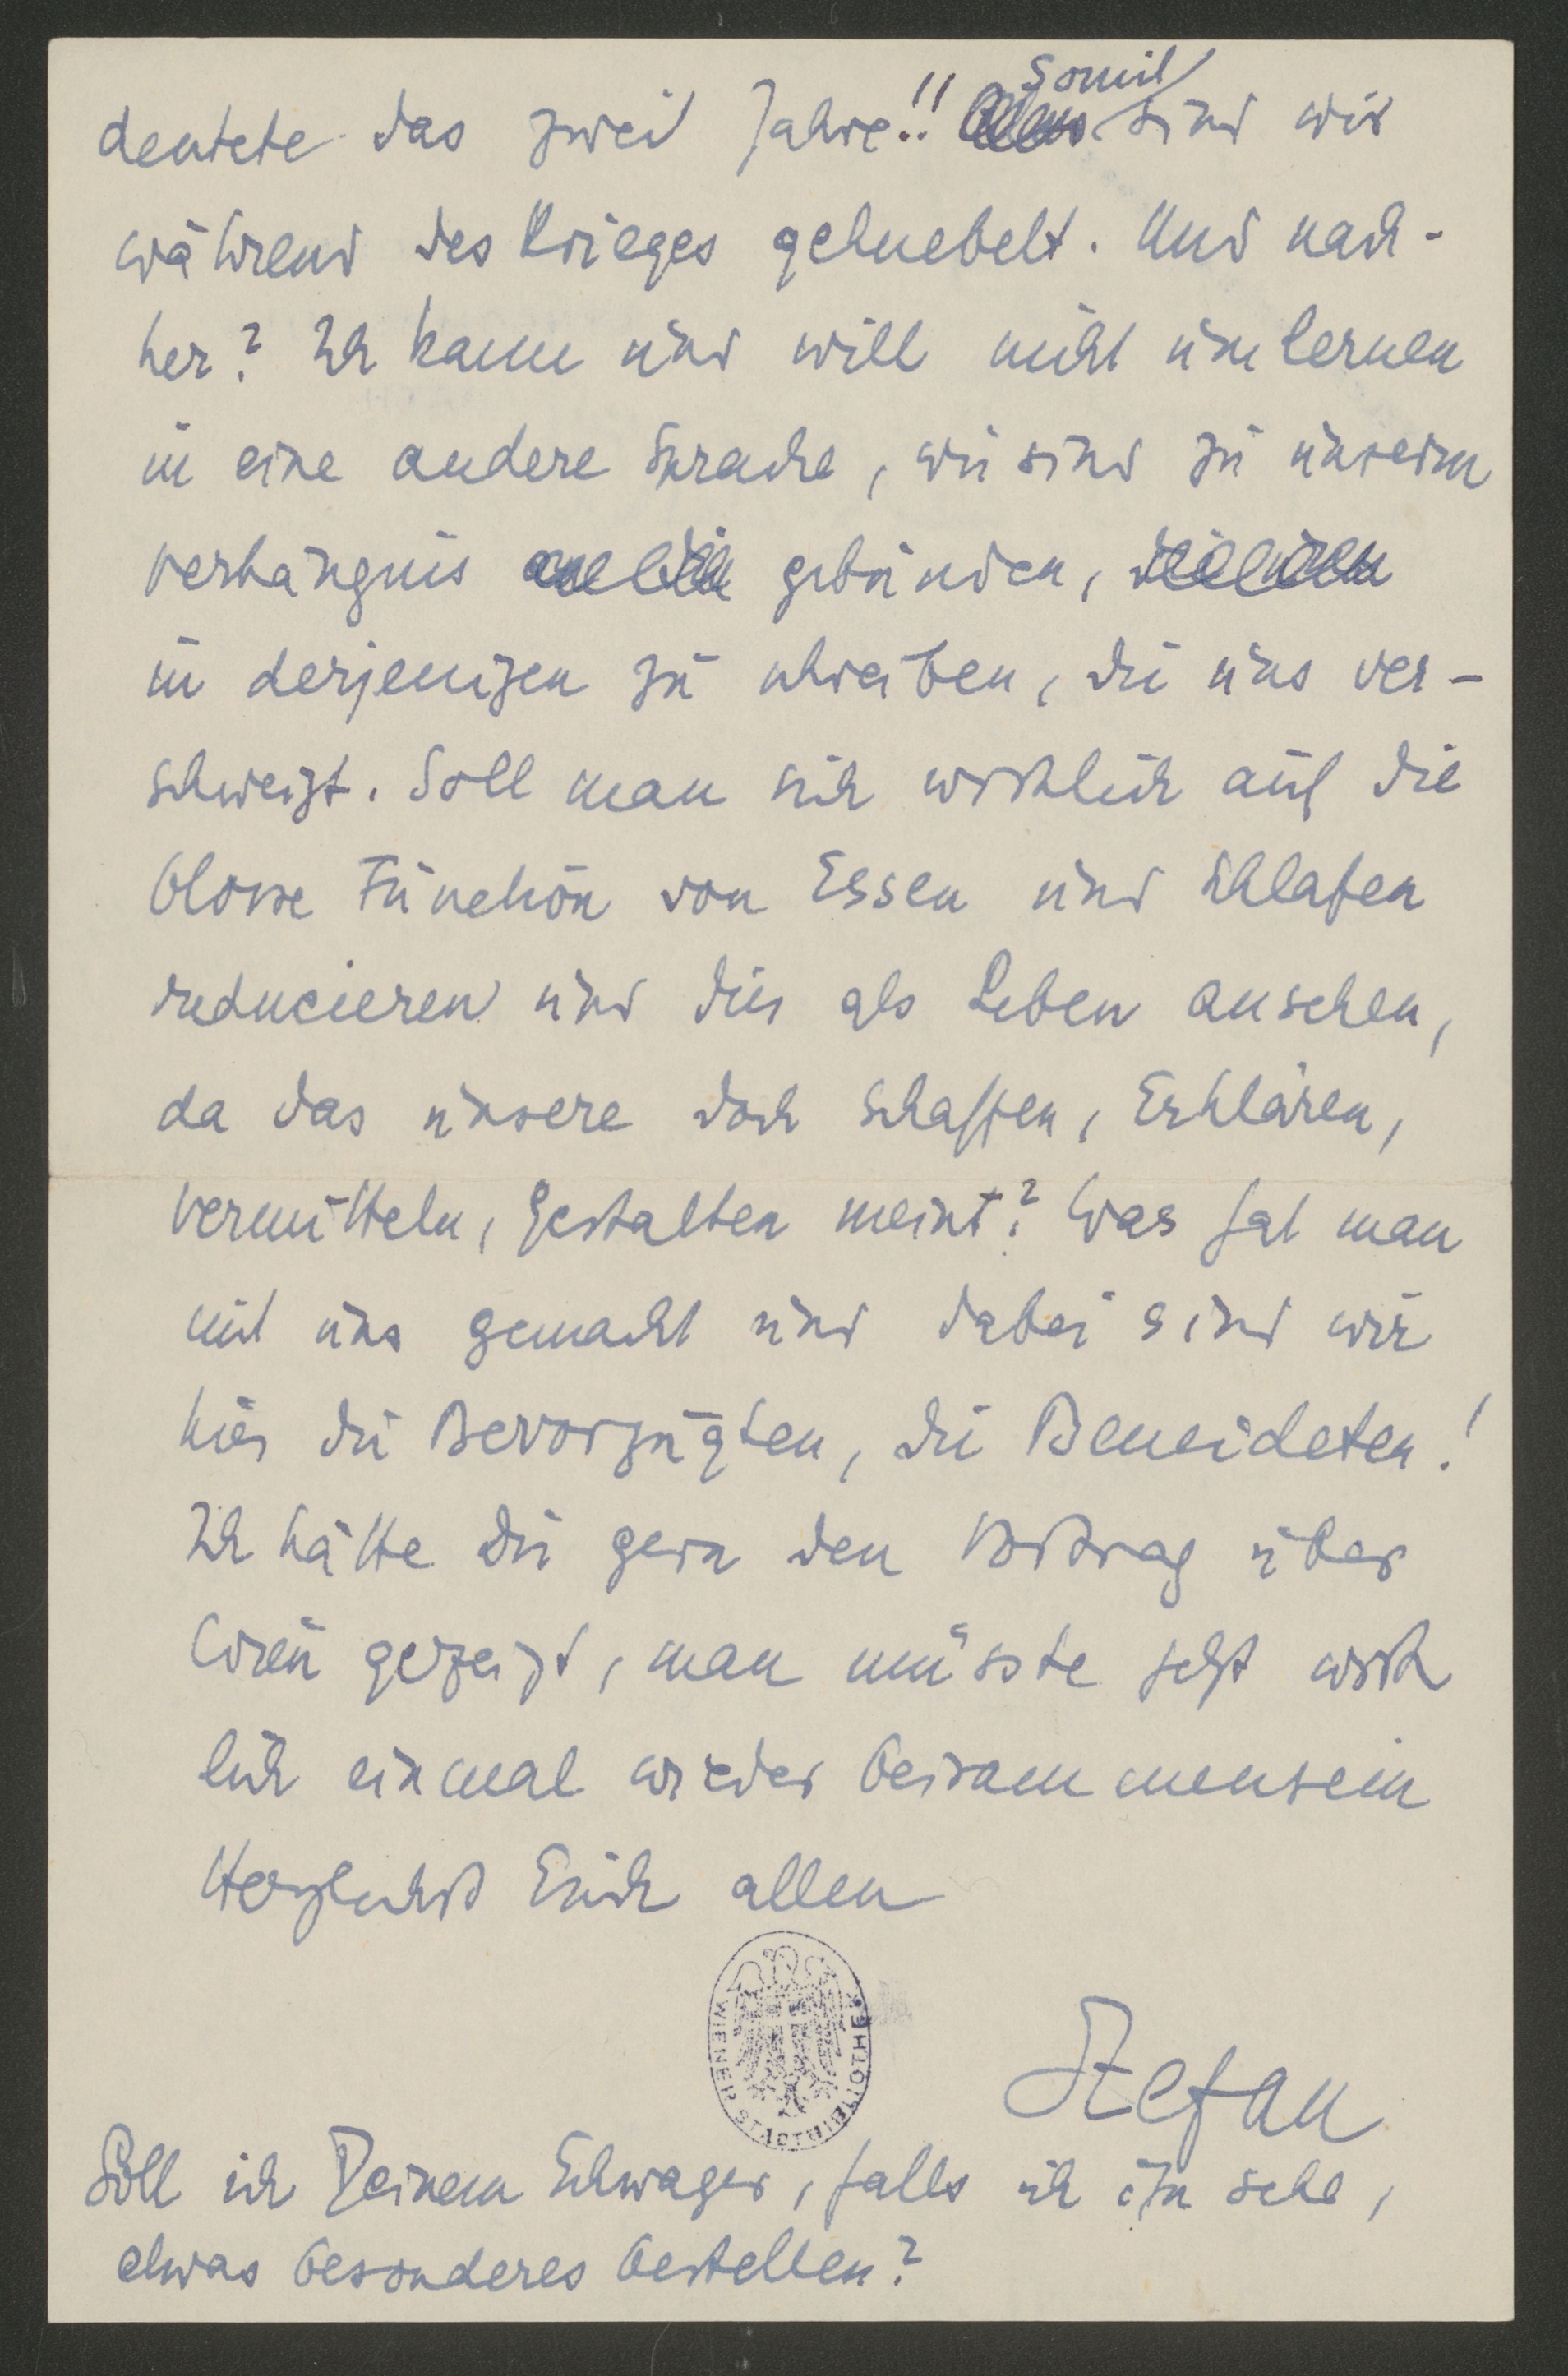 deutete das zwei Jahre!! Somit sind wir
während des Krieges geknebelt. Und nach-
her? Ich kann und will nicht umlernen
in eine andere Sprache, wir sind zu unserm
Verhängnis gebunden,
in derjenigen zu schreiben, die uns ver-
schweigt. Soll man sich wirklich auf die
blosse Function von Essen und Schlafen
reducieren und dies als Leben ansehen,
da das unsere doch Schaffen, Erklären,
Vermitteln, Gestalten meint? Was hat man
mit uns gemacht und dabei sind wir
hier die Bevorzugten, die Beneideten!
Ich hätte Dir gern den Vortrag über
gezeigt, man müsste jetzt wirk
lich einmal wieder beisammensein
Herzlichst Euch allen
Stefan
WIENER STADTBIBLIOTHEK
Soll ich Deinem Schwager, falls ich ihn sehe,
etwas besonderes bestellen?